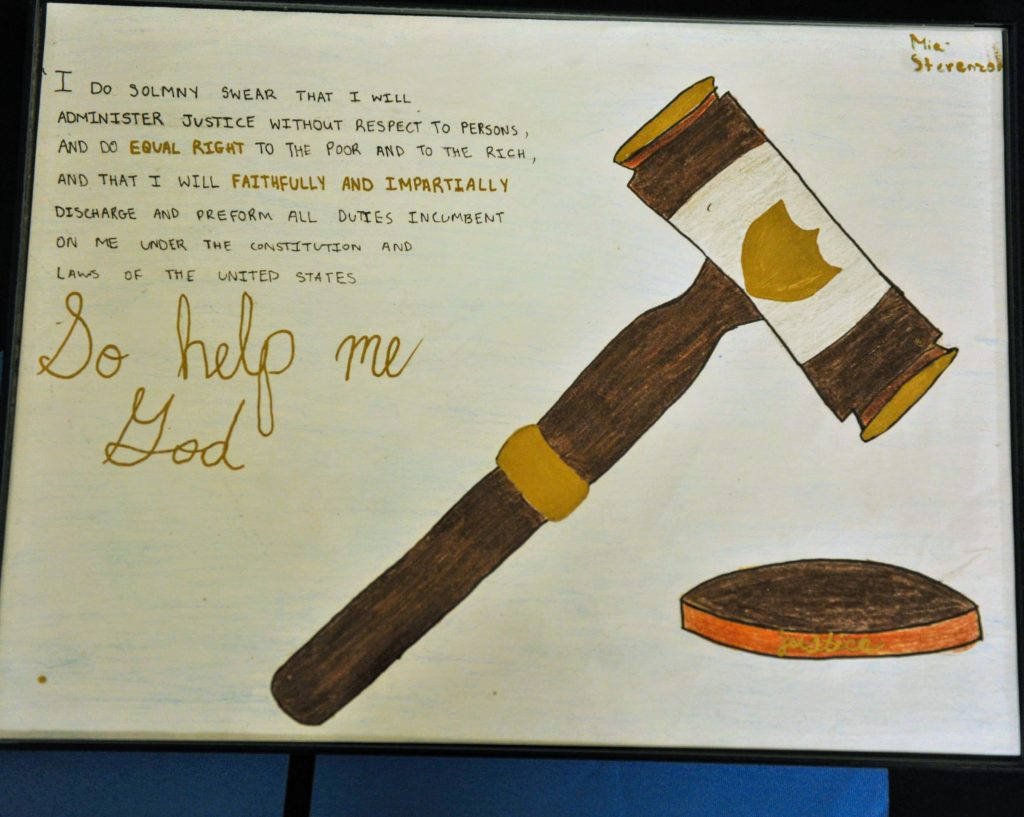 Mia
Stevenson
I DO SOLMNY SWEAR THAT I WILL
ADMINISTER JUSTICE WITHOUT RESPECT TO PERSONS,
AND DO EQUAL RIGHT TO THE POOR AND TO THE RICH,
AND THAT I WILL FAITHFULLY AND IMPARTIALLY
DISCHARGE AND PREFORM ALL DUTIES INCUMBENT
ON ME UNDER THE CONSTITUTION AND
LAWS OF THE UNITED STATES
So help me
God
justice